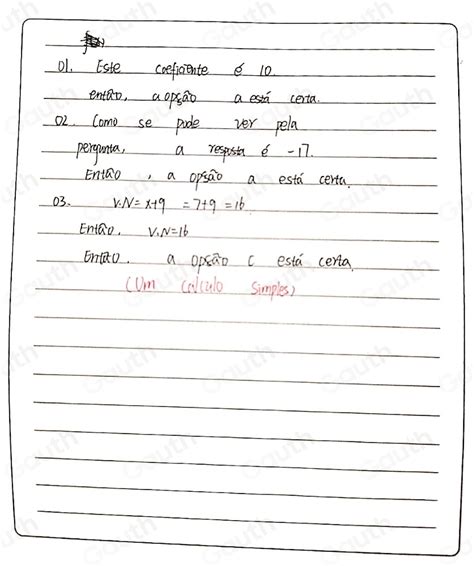 01. Este coeficiente é 10.
então, a opção a está certa.
02. Como se pode ver pela
pergunta, a resposta é -17.
Então, a opsão a está certa.
03. V.N = x+9 = 7+9 = 16
Então, V.N=16
Então, a opsão c está certa.
(Um calculo simples)